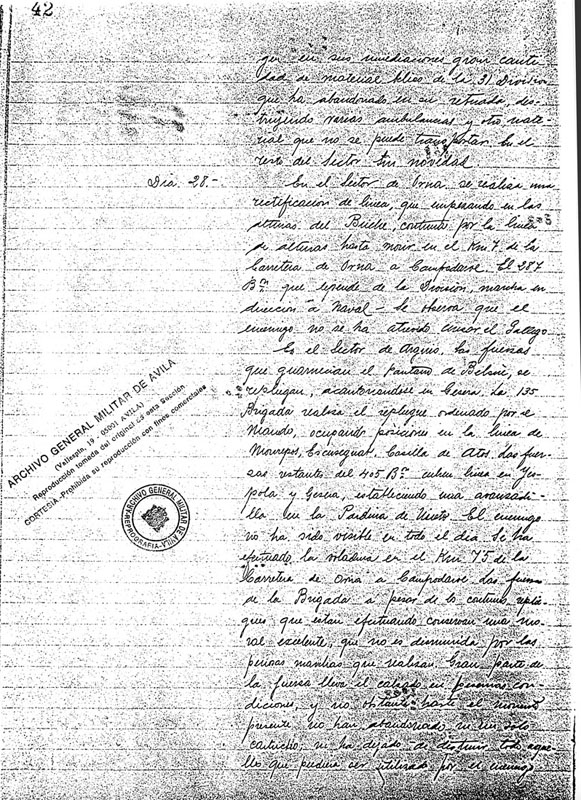 42
que en sus inmediaciones gran canti-
dad de material de la 31 División
que ha abandonado en su retirada, des-
truyendo varias ambulancias y otro mate-
rial que no se puede transportar. En el
resto del Sector sin novedad
Dia. 28.-
En el Sector de Orna, se realiza una
rectificación de linea, que empezando en las
alturas del Buche, continua por la linea
de alturas hasta morir en el Km 7 de la
Carretera de Orna a Campodarve. El 287
Bon que depende de la División, marcha en
dirección a Naval - Se observa que el
enemigo no se ha atrevido cruzar el Gallego
En el Sector de Arguis, las fuerzas
que guarnecian el Pantano de Belsué, se
repliegan, acantonandose en Gesera. La 135
Brigada realiza el repliegue ordenado por el
Mando, ocupando posiciones en la linea de
Monrepos, Escusaguat, Casilla de Atos, las fuer-
zas restantes del 405 Bon cubren linea en Yes-
pola y Gesera, estableciendo una avanzadi-
lla en la Pardina de El enemigo
no ha sido visible en todo el dia. Se ha
efectuado la voladura en el Km 75 de la
Carretera de Orna a Campodarve. Las fuerzas
de la Brigada a pesar de los continuos replie-
gues que estan efectuando conservan una mo-
ral excelente, que no es desmentida por las
penosas marchas que realizan. Gran parte de
la fuerza lleva el calzado en pesimas con-
diciones, y no obstante hasta el momento
presente no han abandonado ni un solo
cartucho, ni ha dejado de destruir todo aque-
llo que pudiera ser utilizado por el enemigo
ARCHIVO GENERAL MILITAR DE AVILA
(Vallespin, 19 - 05001 AVILA)
Reproducción tomada del original de esta Sección
CORTESIA.-Prohibida su reproducción con fines comerciales
ARCHIVO GENERAL MILITAR DE AVILA
REPROGRAFIA